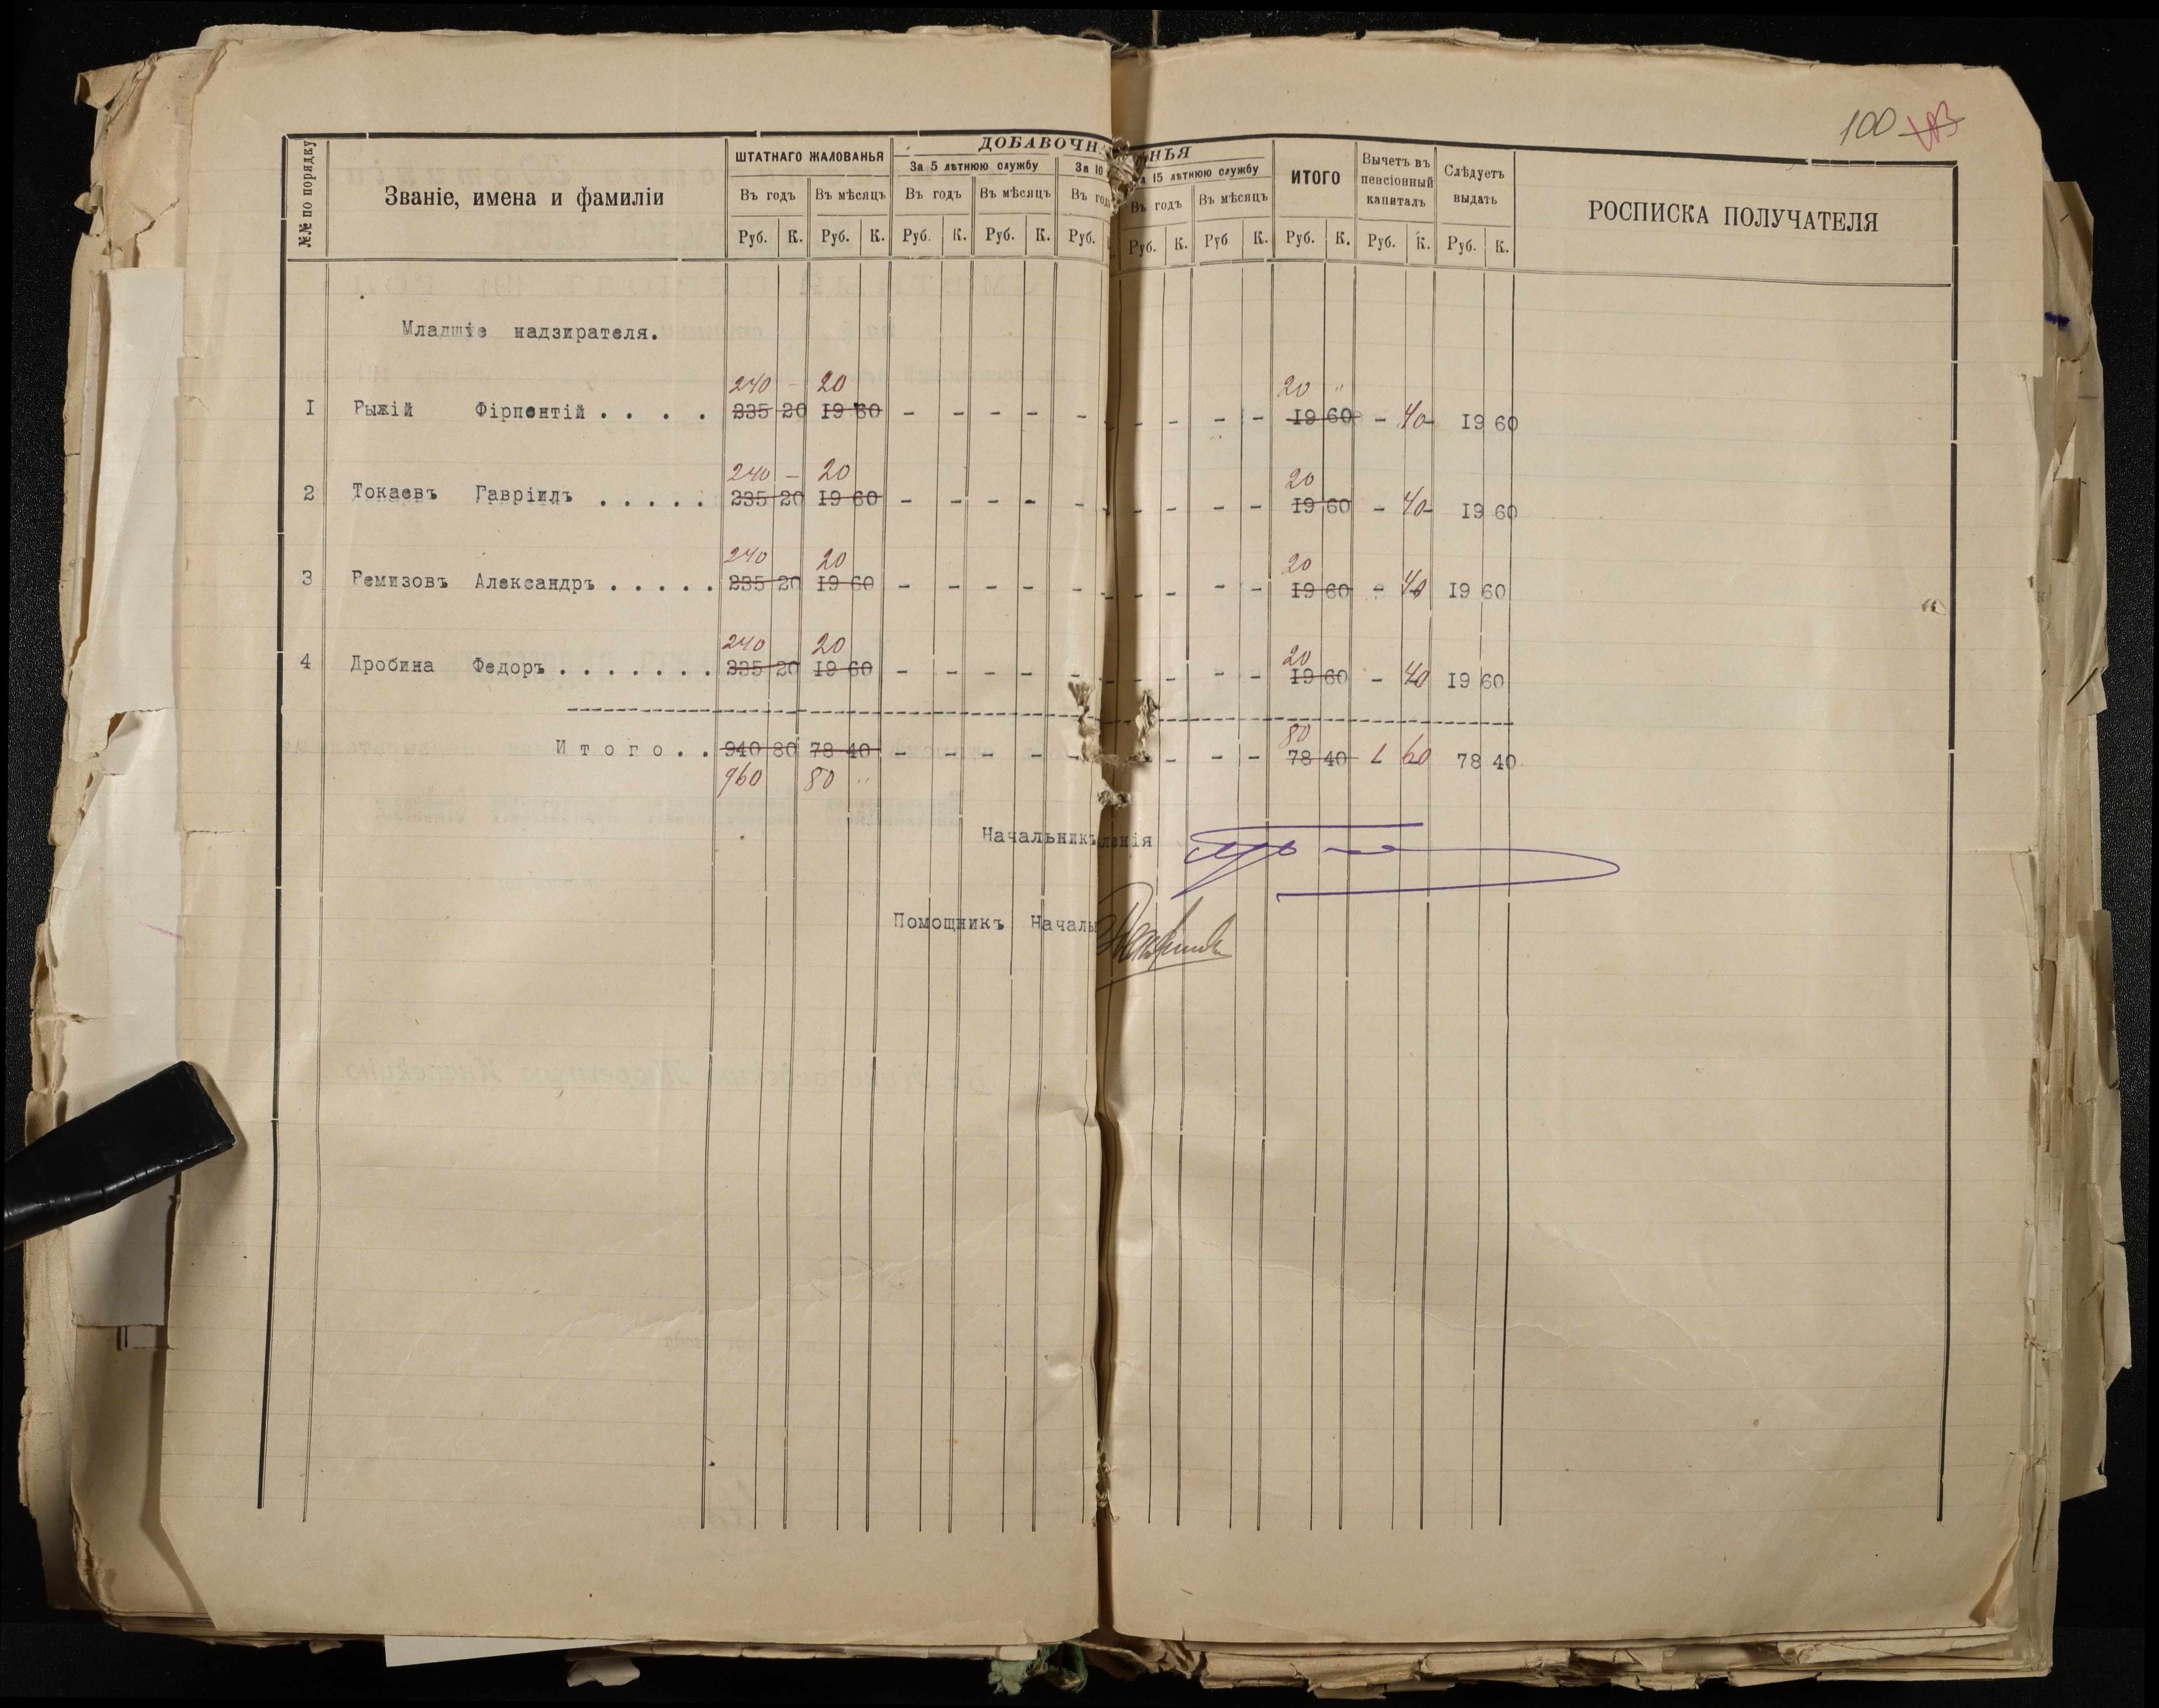 100
№№ по порядку
Званіе, имена и фамиліи
ШТАТНАГО ЖАЛОВАНЬЯ
ДОБАВОЧН НЬЯ
За 5 лѣтнюю службу За 10 а 15 лѣтнюю службу
Въ годъ Въ мѣсяцъ Въ годъ Въ мѣсяцъ Въ год Въ годъ Въ мѣсяцъ
ИТОГО
Вычетъ въ пенсіонный капиталъ
Слѣдуетъ выдать
РОСПИСКА ПОЛУЧАТЕЛЯ
Руб. К. Руб. К. Руб. К. Руб. К. Руб. Руб. К. Руб К. Руб. К. Руб. К. Руб. К.
Младшіе надзирателя.
240 - 20 20 "
1 Рыжій Фірпентій . . . . 235 20 19 60 - - - - - - - - - 19 60 - 40 19 60
240 - 20 20
2 Токаевъ Гавріилъ . . . . . 235 20 19 60 - - - - - - - - - 19 60 - 40 19 60
240 20 20
3 Ремизовъ Александръ . . . . . 235 20 19 60 - - - - - - - - - 19 60 - 40 19 60
240 20 20
4 Дробина Федоръ . . . . . . . 235 20 19 60 - - - - - - - - - 19 60 - 40 19 60
80
Итого. . 940 80 78 40 - - - - - - - - 78 40 1 60 78 40
960 80 "
Начальникъ ленія
Помощникъ Началь